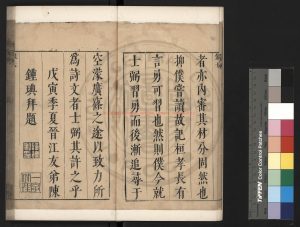 者亦內審其材分固然也
抑僕嘗讀故記桓孝長有
言勇可習也然則僕今就
士弼習勇而後漸追尋于
空濛廣寡之途以致力所
為詩文者士弼其許之乎
戊寅季夏晉江友弟陳
鍾琠拜題
TIFFEN
Color Control Patches